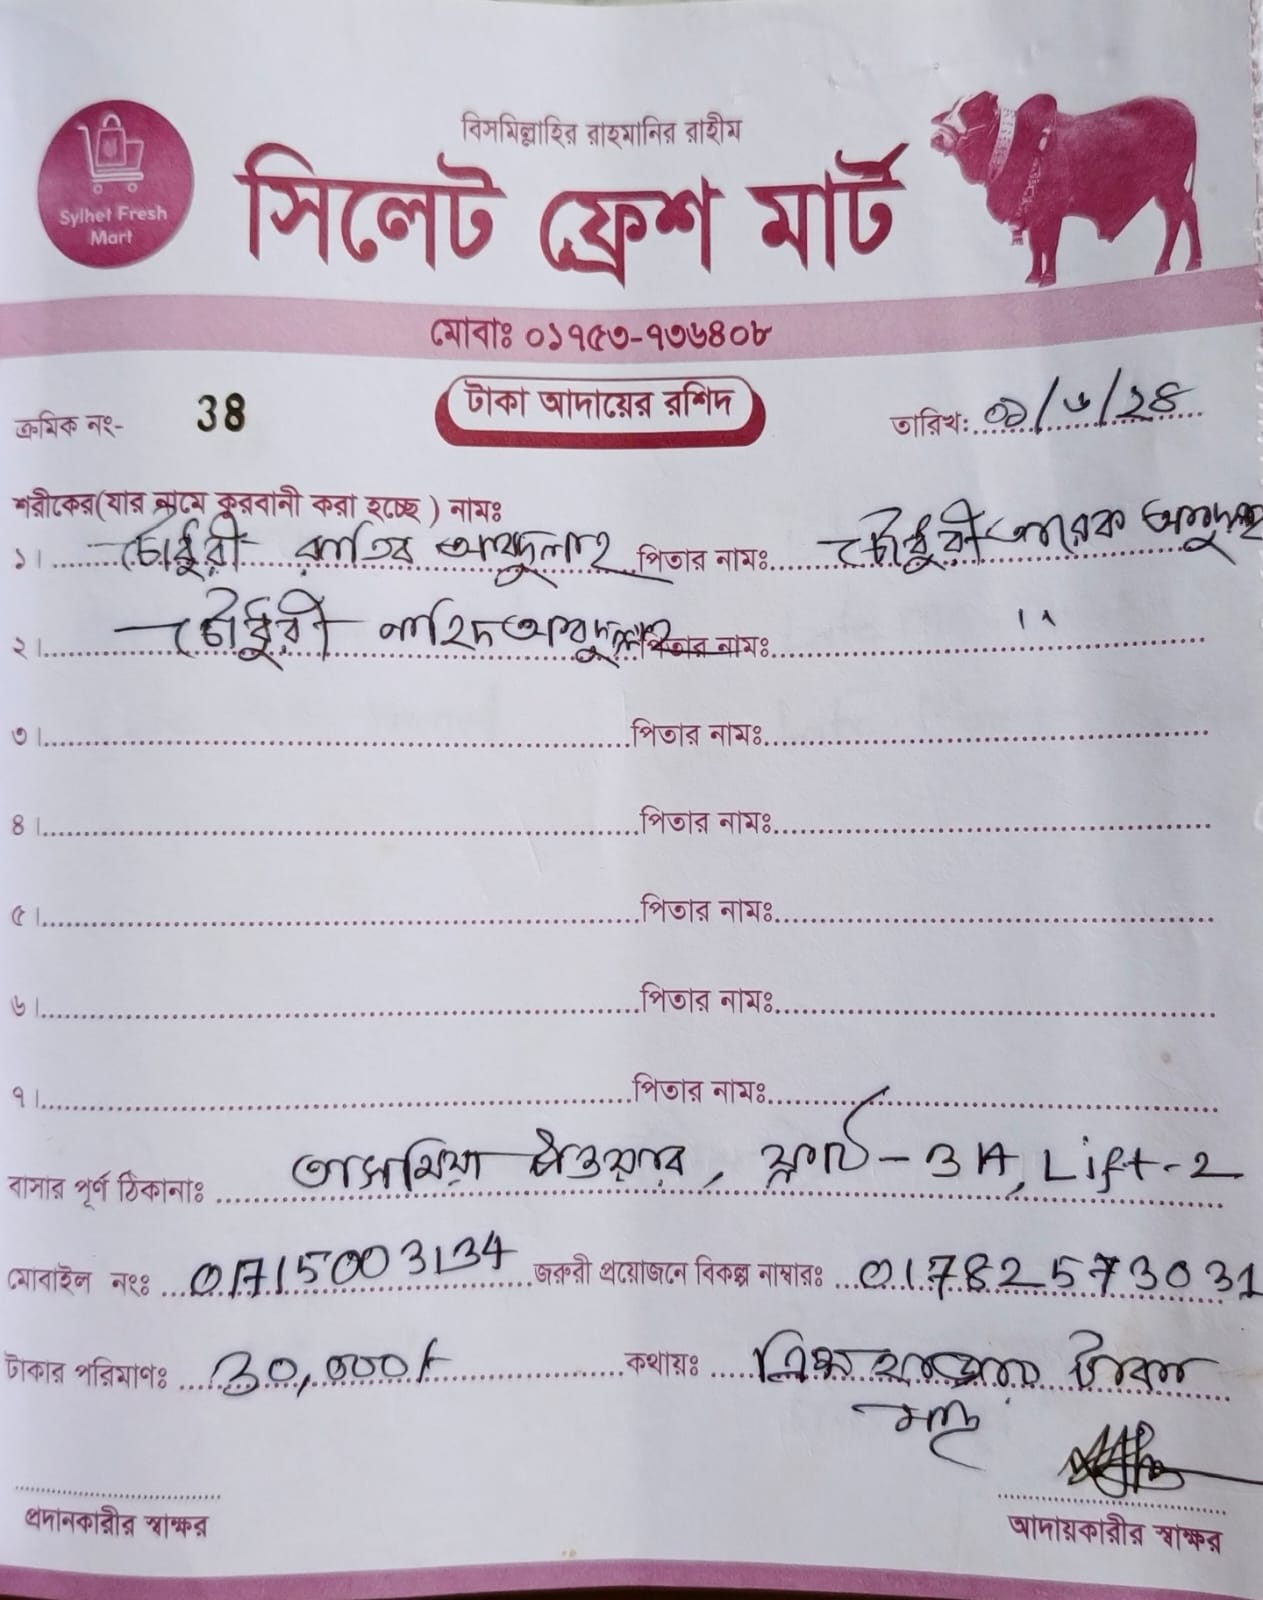 Sylhet Fresh
Mart
বিসমিল্লাহির রাহমানির রাহীম
সিলেট ফ্রেশ মার্ট
মোবাঃ ০১৭৫৩-৭৩৬৪০৮
ক্রমিক নং- 38
টাকা আদায়ের রশিদ
তারিখ: ০১/৬/২৪
শরীকের(যার নামে কুরবানী করা হচ্ছে ) নামঃ
১। চৌধুরী রাতিব আব্দুলাহ পিতার নামঃ চৌধুরী তারেক আব্দুল্লাহ
২। চৌধুরী নাহিদ আব্দুল্লাহ পিতার নামঃ 11
৩। পিতার নামঃ
৪। পিতার নামঃ
৫। পিতার নামঃ
৬। পিতার নামঃ
৭। পিতার নামঃ
বাসার পূর্ণ ঠিকানাঃ তাসমিয়া টাওয়ার, ফ্লাট - 3A, Lift-2
মোবাইল নংঃ 01715003134 জরুরী প্রয়োজনে বিকল্প নাম্বারঃ 01782573031
টাকার পরিমাণঃ 30,000/- কথায়ঃ ত্রিশ হাজার টাকা
মাত্র
প্রদানকারীর স্বাক্ষর
আদায়কারীর স্বাক্ষর